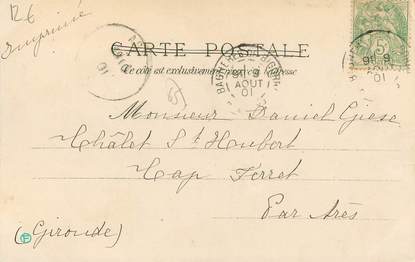 R6
Imprimé
CARTE POSTALE
Ce côté est exclusivement réservé à l'adresse
5
AOUT
01
(65)
Monsieur Daniel Giese
Châlet St Hubert
Cap Ferret
Par Arès
(Gironde)